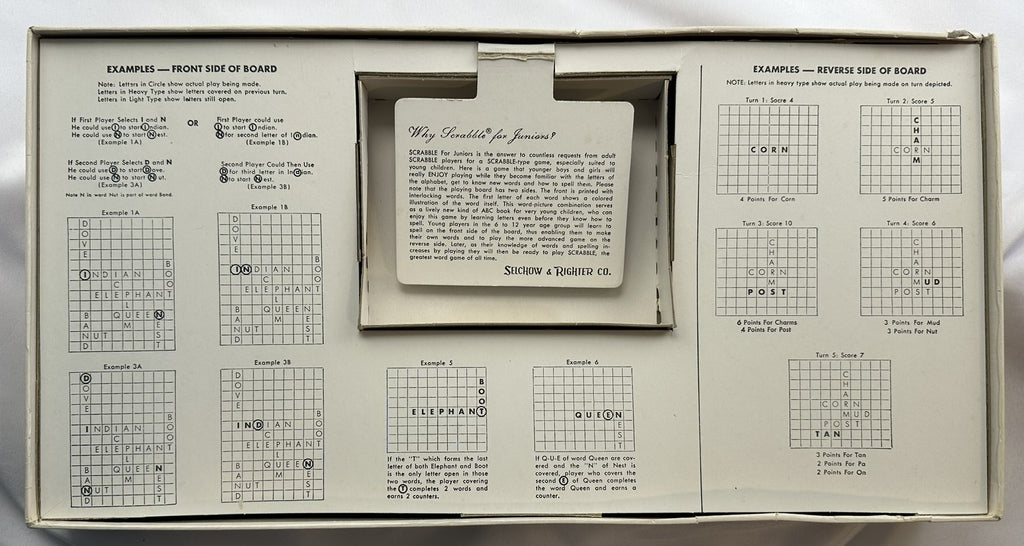 EXAMPLES — FRONT SIDE OF BOARD
Note: Letters in Circle show actual play being made.
Letters in Heavy Type show letters covered on previous turn.
Letters in Light Type show letters still open.
If First Player Selects I and N
He could use I to start Indian.
He could use N to start Nest.
(Example 1A)
OR
First Player could use
I to start Indian.
N for second letter of Indian.
(Example 1B)
If Second Player Selects D and N
He could use D to start Dove.
He could use N to start Nut.
(Example 3A)
Note N in word Nut is part of word Band.
Second Player Could Then Use
D for third letter in Indian
N to start Nest.
(Example 3B)
Example 1A
D
O
V
E
INDIAN
B
O
O
C
ELEPHANT
L
B QUEEN
A M E
NUT S
D T
Example 1B
D
O
V
E
INDIAN
B
O
O
C
ELEPHANT
L
B QUEEN
A M E
NUT S
D T
Example 3A
D
O
V
E
INDIAN
B
O
O
C
ELEPHANT
L
B QUEEN
A M E
NUT S
D T
Example 3B
D
O
V
E
INDIAN
B
O
O
C
ELEPHANT
L
B QUEEN
A M E
NUT S
D T
Example 5
B
O
O
ELEPHANT
If the "T" which forms the last
letter of both Elephant and Boot
is the only letter open in those
two words, the player covering
the T completes 2 words and
earns 2 counters.
Example 6
QUEEN
E
S
T
If Q-U-E of word Queen are cov-
ered and the "N" of Nest is
covered, player who covers the
second E of Queen completes
the word Queen and earns a
counter.
Why Scrabble® for Juniors?
SCRABBLE For Juniors is the answer to countless requests from adult
SCRABBLE players for a SCRABBLE-type game, especially suited to
young children. Here is a game that younger boys and girls will
really ENJOY playing while they become familiar with the letters of
the alphabet, get to know new words and how to spell them. Please
note that the playing board has two sides. The front is printed with
interlocking words. The first letter of each word shows a colored
illustration of the word itself. This word-picture combination serves
as a lively new kind of ABC book for very young children, who can
enjoy this game by learning letters even before they know how to
spell. Young players in the 6 to 12 year age group will learn to
spell on the front side of the board, thus enabling them to make
their own words and to play the more advanced game on the
reverse side. Later, as their knowledge of words and spelling in-
creases by playing they will then be ready to play SCRABBLE, the
greatest word game of all time.
SELCHOW & RIGHTER CO.
EXAMPLES — REVERSE SIDE OF BOARD
NOTE: Letters in heavy type show actual play being made on turn depicted.
Turn 1: Score 4
CORN
4 Points For Corn
Turn 2: Score 5
C
H
A
CORN
M
5 Points For Charm
Turn 3: Score 10
C
H
A
CORN
M
POST
6 Points For Charms
4 Points For Post
Turn 4: Score 6
C
H
A
CORN
MUD
POST
3 Points For Mud
3 Points For Nut
Turn 5: Score 7
C
H
A
CORN
MUD
POST
TAN
3 Points For Tan
2 Points For Pa
2 Points For On